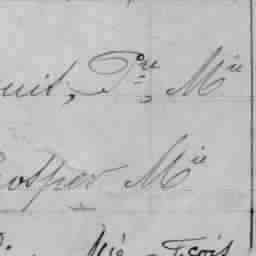 uit, Pre Mie
osper Mie
Mie Fcois